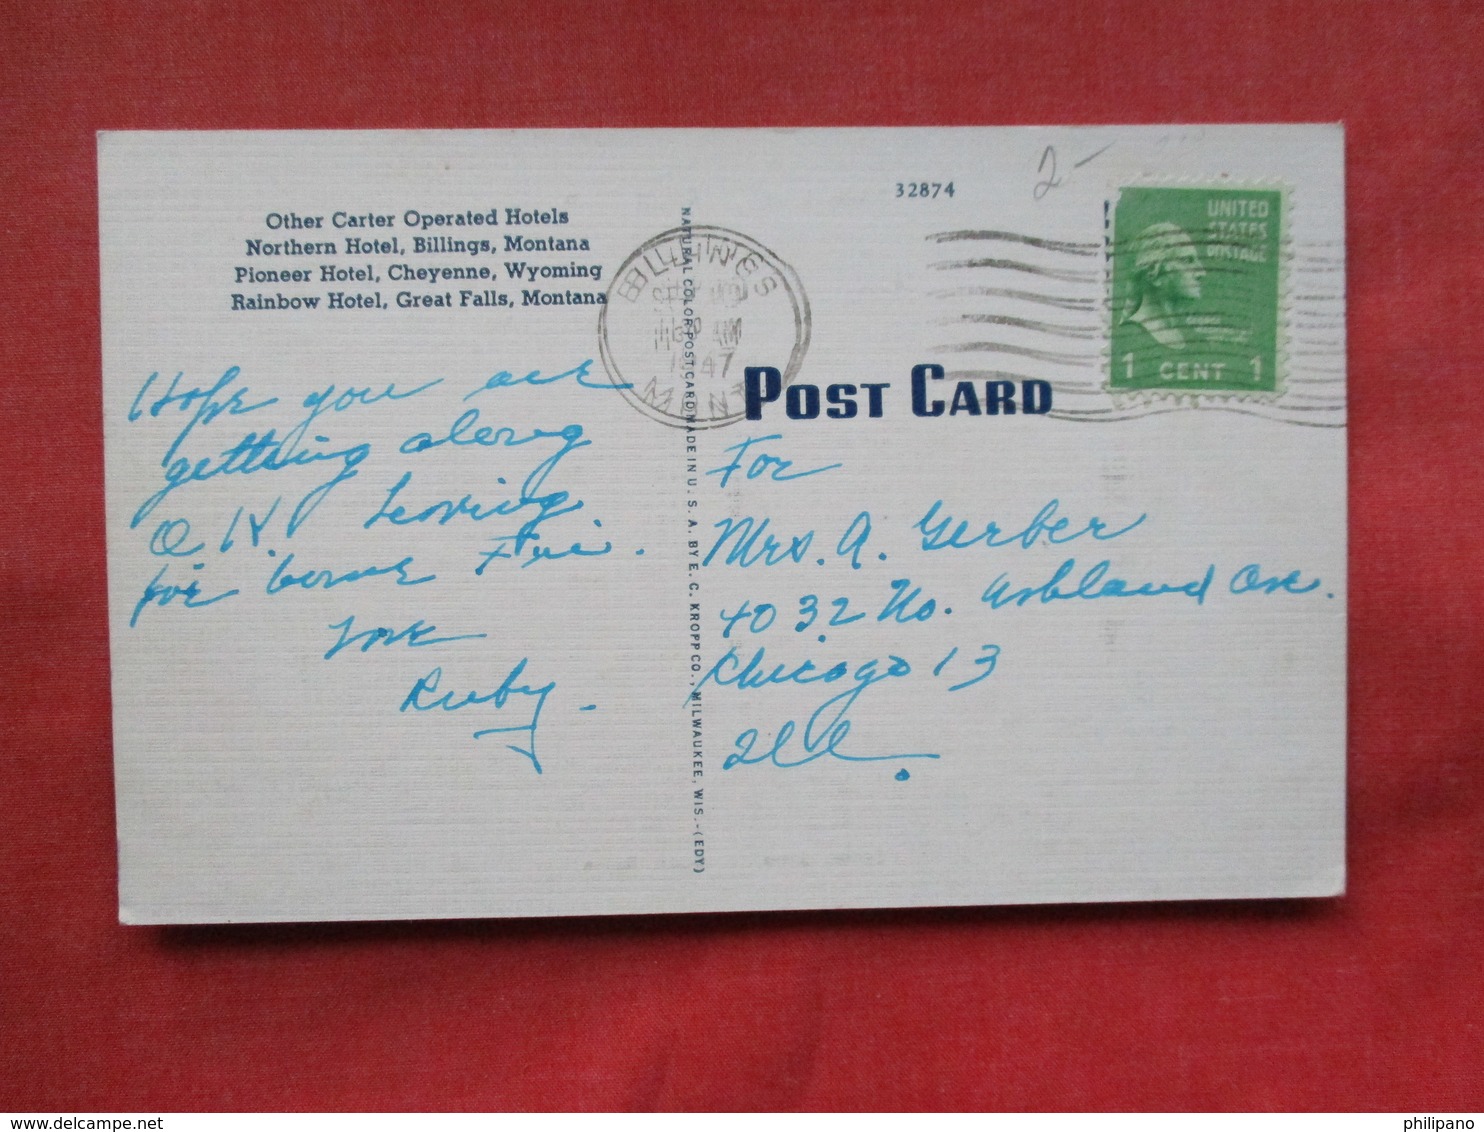 32874
2-
Other Carter Operated Hotels
Northern Hotel, Billings, Montana
Pioneer Hotel, Cheyenne, Wyoming
Rainbow Hotel, Great Falls, Montana
BILLINGS
AM
1947
MONT
UNITED
STATES
POSTAGE
1 CENT 1
POST CARD
Hope you are
getting along
O.K. Leaving
for home Fri.
Love
Ruby.
NATURAL COLOR POST CARD MADE IN U. S. A. BY E. C. KROPP CO., MILWAUKEE, WIS.-(EDY)
For
Mrs. A. Gerber
4032 No. Ashland Ave.
Chicago 13
Ill.
philipano